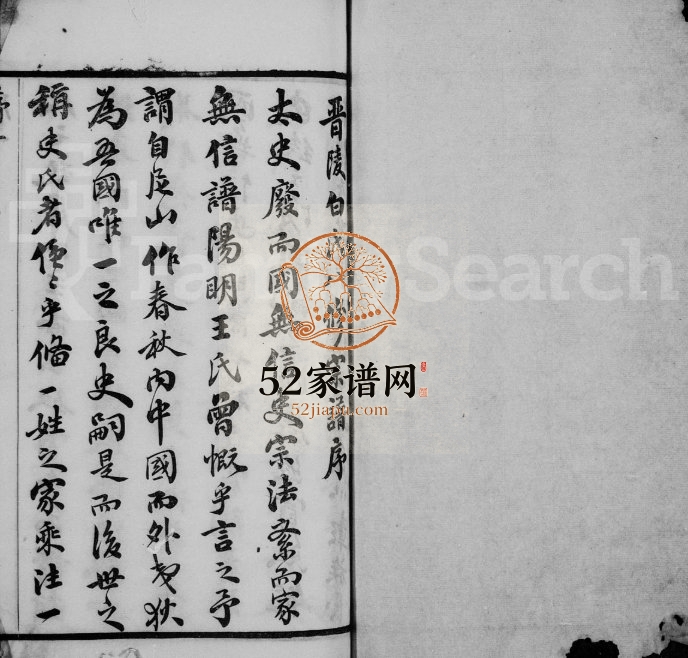 晋陵白氏修宗譜序
太史廢而國無信史宗法紊而家
無信譜陽明王氏曾慨乎言之予
謂自尼山作春秋内中國而外夷狄
為吾國唯一之良史嗣是而後世之
稱史氏者僅〻乎脩一姓之家乘注一
FamilySearch
52家谱网
52jiapu.com